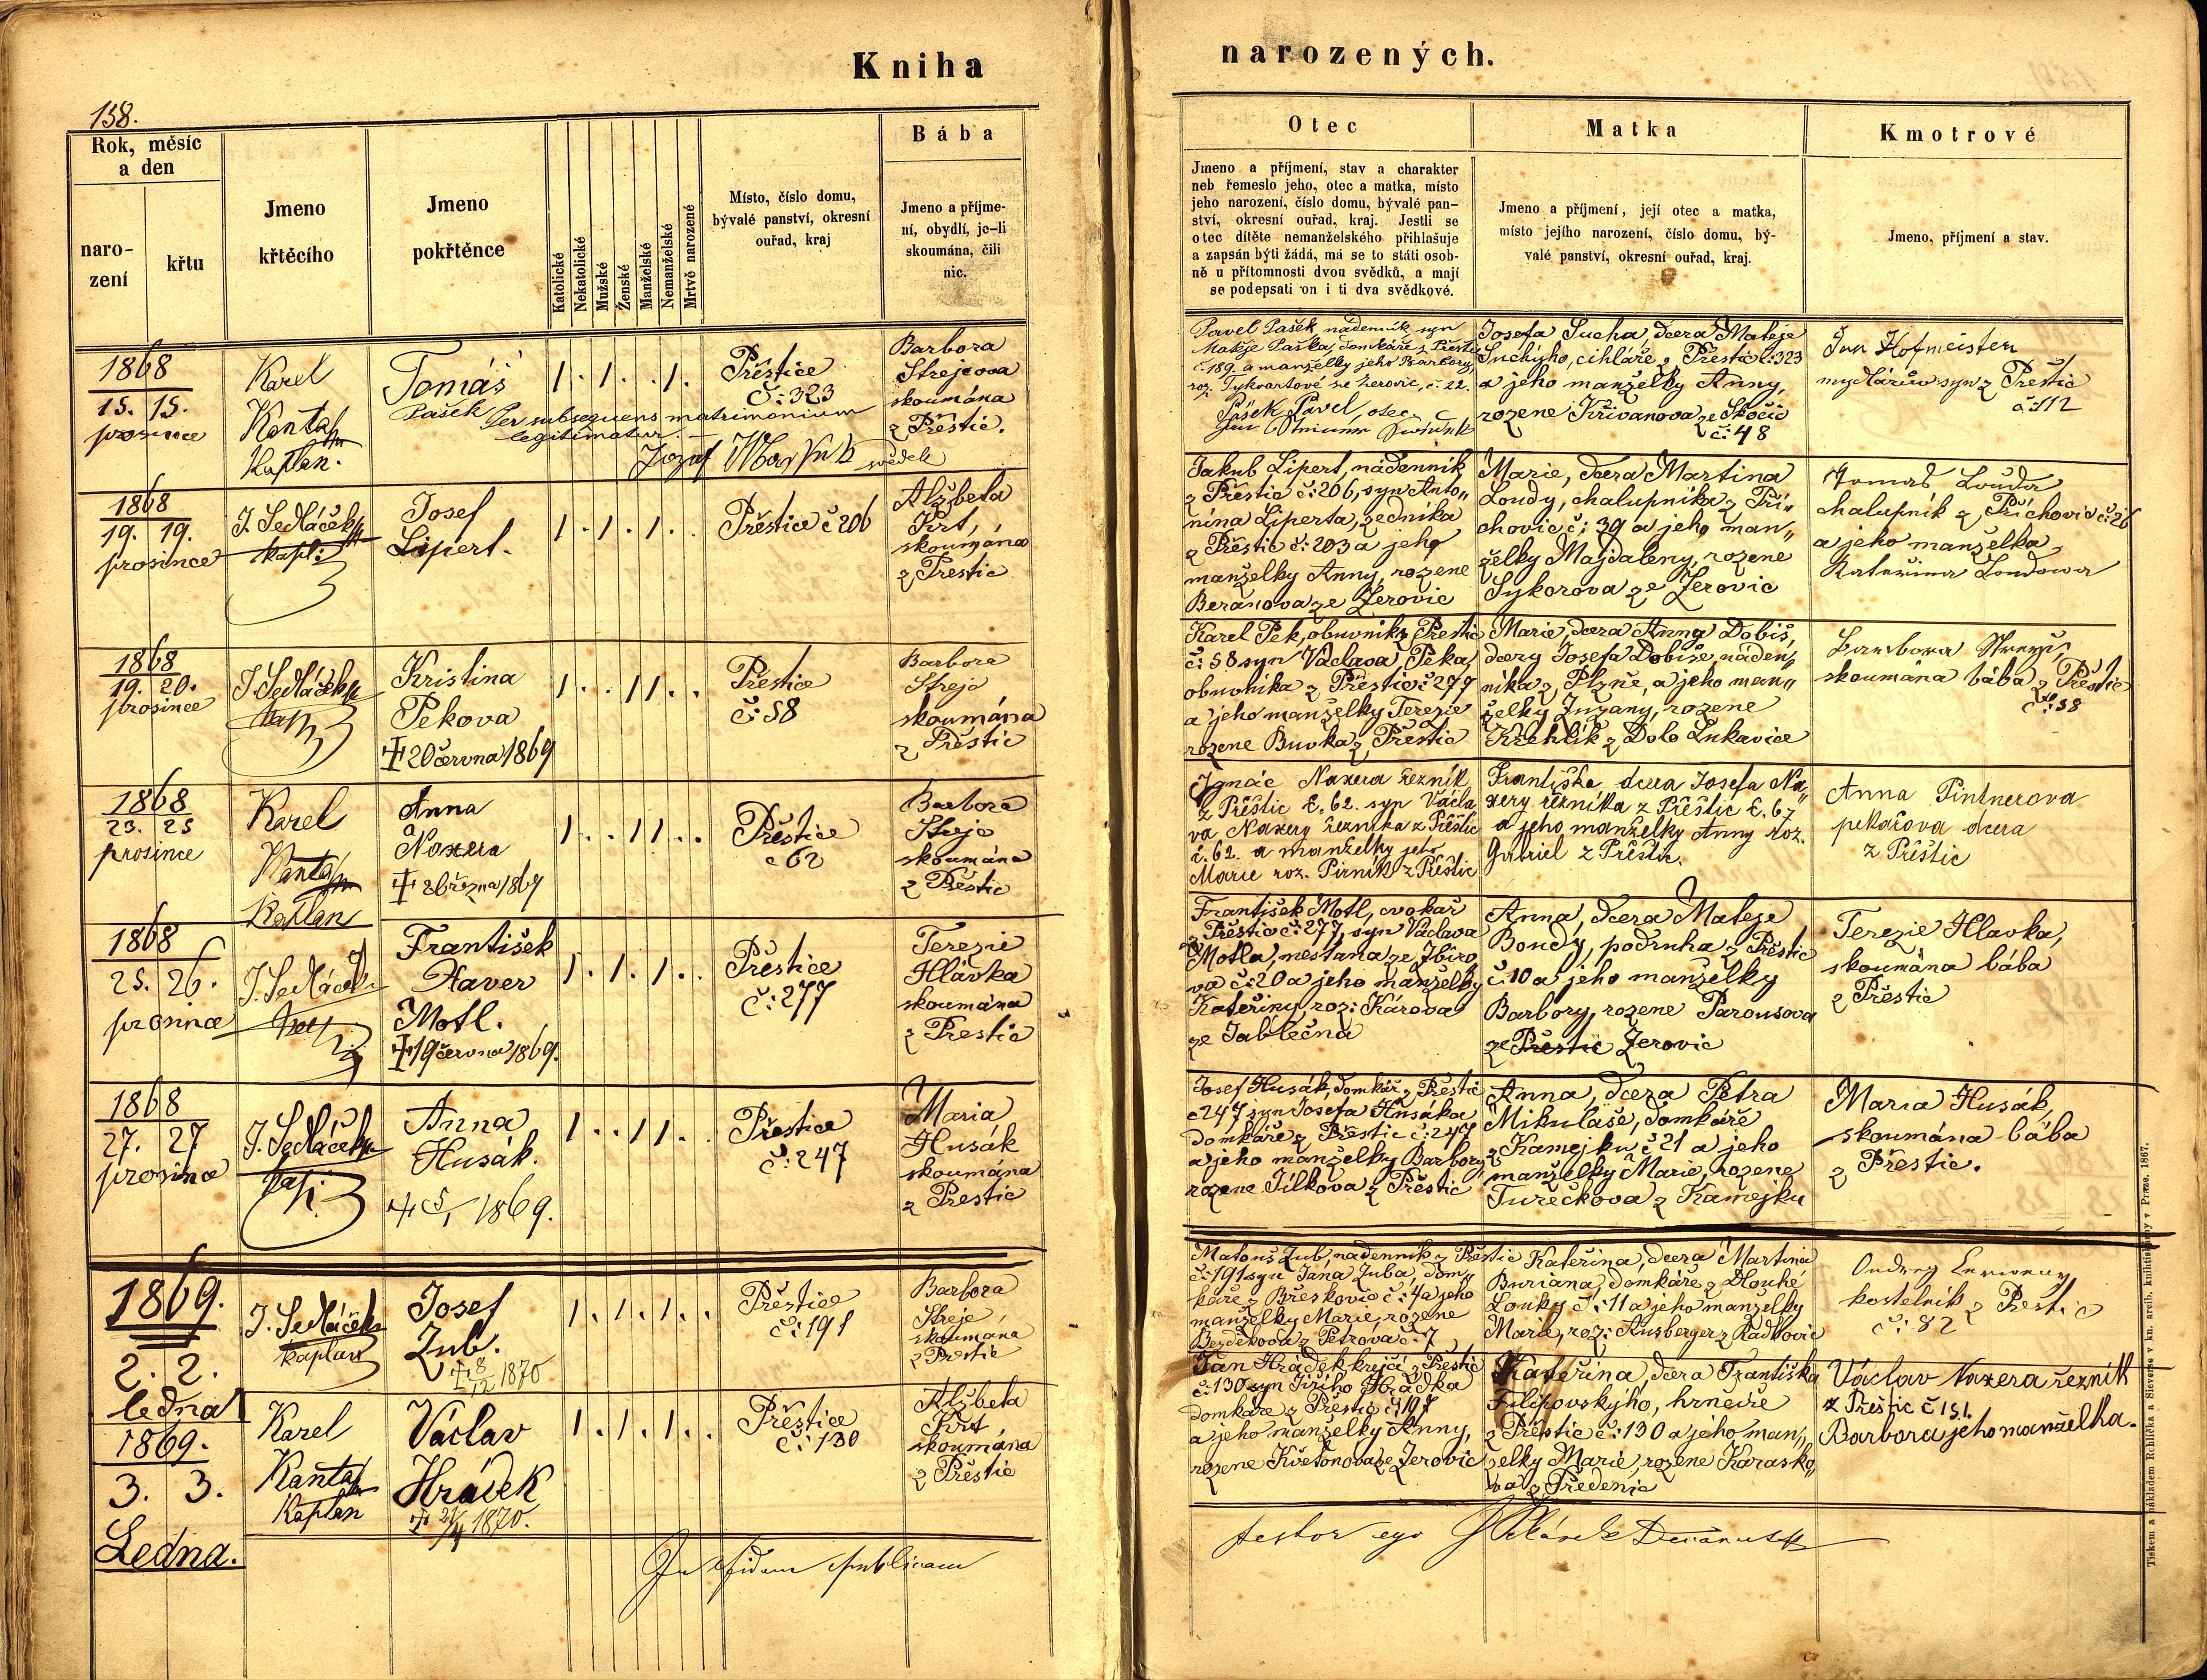 Kniha
158.
Rok, měsíc
a den
naro-
zení
křtu
Jmeno
křtěcího
Jmeno
pokřtěnce
Katolické
Nekatolické
Mužské
Ženské
Manželské
Nemanželské
Mrtvě narozené
Místo, číslo domu,
bývalé panství, okresní
ouřad, kraj
Bába
Jmeno a příjme-
ní, obydlí, je-li
skoumána, čili
nic.
1868
15. 15.
prosince
Karel
Kanta
Kaplan.
Tomáš
Pašek Per subsequens matrimonium
legitimatur.
1. 1. . 1.
Přeštice
č: 323
Barbora
Strejcova
skoumána
z Přeštic.
svědek
1868
19. 19.
prosince
J. Sedláček
kapl:
Josef
Lipert.
1. 1. 1. .
Přeštice č 206
Alžběta
Krt,
skoumána
z Přeštic
1868
19. 20.
prosince
J. Sedláček
Kristina
Pekova
+ 20 června 1869
1. . 1 1. .
Přeštice
č: 58
Barbora
Strejc
skoumána
z Přeštic
1868
23. 25
prosince
Karel
Kanta
Kaplan
Anna
Naxera
+ 26 března 1869
1. . 1 1. .
Přeštice
č 62
Barbora
Strejc
skoumána
z Přeštic
1868
25. 26.
prosince
J. Sedláček
František
Xaver
Motl.
+ 19 června 1869.
1. 1. 1. .
Přeštice
č: 277
Terezie
Hlávka
skoumána
z Přeštic
1868
27. 27
prosince
J. Sedláček
Anna
Husák.
1869.
1. . 1 1. .
Přeštice
č: 247
Maria
Husák
skoumána
z Přeštic
1869.
2. 2.
ledna
J. Sedláček
kaplan
Josef
Zub.
+ 8/12 1870
1. 1. 1. .
Přeštice
č: 191
Barbora
Strejc
skoumána
z Přeštic
1869.
3. 3.
Ledna.
Karel
Kanta
Kaplan
Václav
Hrádek
+ 21/4 1870.
1. 1. 1. .
Přeštice
č: 130
Alžběta
Krt
skoumána
z Přeštic
In fidem publicam
narozených.
Otec
Jmeno a příjmení, stav a charakter
neb řemeslo jeho, otec a matka, místo
jeho narození, číslo domu, bývalé pan-
ství, okresní ouřad, kraj. Jestli se
otec dítěte nemanželského přihlašuje
a zapsán býti žádá, má se to státi osob-
ně u přítomnosti dvou svědků, a mají
se podepsati on i ti dva svědkové.
Matka
Jmeno a příjmení, její otec a matka,
místo jejího narození, číslo domu, bý-
valé panství, okresní ouřad, kraj.
Kmotrové
Jmeno, příjmení a stav.
Pavel Pašek, nádenník syn
Matěje Paška, domkáře z Přeštic
č. 189. a manželky jeho Barbory,
roz. Tykvartové ze Žerovic, č. 22.
Pašek Pavel, otec
Josefa Sucha, dcera Mateje
Suchýho, cihláře z Přeštic č: 323
a jeho manželky Anny,
rozene Křivanova ze Skočic
č: 48
Jan Hofmeister
mydlářův syn z Přeštic
č: 112
Jakub Lipert, nádenník
z Přeštic č: 206, syn Anto„
nína Liperta, zedníka
z Přeštic č: 203 a jeho
manželky Anny, rozene
Beranova ze Žerovic
Marie, dcera Martina
Loudy, chalupníka z Při„
chovic č: 39 a jeho man„
želky Majdaleny, rozene
Sykorova ze Žerovic
Tomaš Louda
chalupník z Přichovic č: 26
a jeho manželka
Kateřina Loudowa
Karel Pek, obuvník z Přeštic
č: 58 syn Václava Peka,
obuvníka z Přeštic č 277
a jeho manželky Terezie
rozene Buvka z Přeštic
Marie, dcera Anny Dobiš,
dcery Josefa Dobiše, náden„
níka z Plzně, a jeho man„
želky Zuzany, rozene
Křehlík z Dolo Lukavice
Barbora
skoumána bába z Přeštic
č: 38
Ignác Naxera řezník
z Přeštic č. 62. syn Václa„
va Naxery řezníka z Přeštic
č. 62. a manželky jeho
Marie roz. Pirník z Přeštic
Františka dcera Josefa Na„
xery řezníka z Přeštic č. 67
a jeho manželky Anny roz.
Gabriel z Přeštic.
Anna Pintnerova
pekařova dcera
z Přeštic
František Motl, cvokař
z Přeštic č: 277, syn Václava
Motla, měšťana ze Zbiro„
va č: 20 a jeho manželky
Kateřiny, roz: Károva
ze Jablečna
Anna, dcera Mateje
Bondy, podruha z Přeštic
č: 10 a jeho manželky
Barbory, rozene Parousova
ze Přeštic Žerovic
Terezie Hlavka,
skoumána bába
z Přeštic
Josef Husák, domkář z Přeštic
č 247 syn Josefa Husáka
domkáře z Přeštic č: 247
a jeho manželky Barbory
rozene Jílkova z Přeštic
Anna, dcera Petra
Mikuláše, domkáře
z Kamejku č 21 a jeho
manželky Marie, rozene
Turečkova z Kamejku
Maria Husák,
skoumána bába
z Přeštic.
Matouš Zub, nádenník z Přeštic
č: 191 syn Jána Zuba, dom„
káře z Břeskovic č: 4 a jeho
manželky Marie, rozene
Bezděkova z Petrova č: 7
Kateřina, dcera Martina
Buriana, domkáře z Dlouhé
Louky č: 11 a jeho manželky
Marie, roz: Ausberger z Radkovic
Ondrej
kostelník z Přeštic
č: 82
Jan Hrádek krejčí z Přeštic
č: 130 syn Jiřího Hrádka
domkáře z Přeštic č: 197
a jeho manželky Anny,
rozene Květoňova ze Žerovic
Kateřina, dcera Františka
Filipovskýho, hrnčíře
z Přeštic č: 130 a jeho man„
želky Marie, rozene Karasko„
va z Předenic
Václav Naxera řezník
z Přeštic č 151.
Barbora jeho manželka.
testor ego
Tiskem a nákladem Rohlíčka a Sieverse v kn. arcib. knihtiskárny v Praze. 1867.